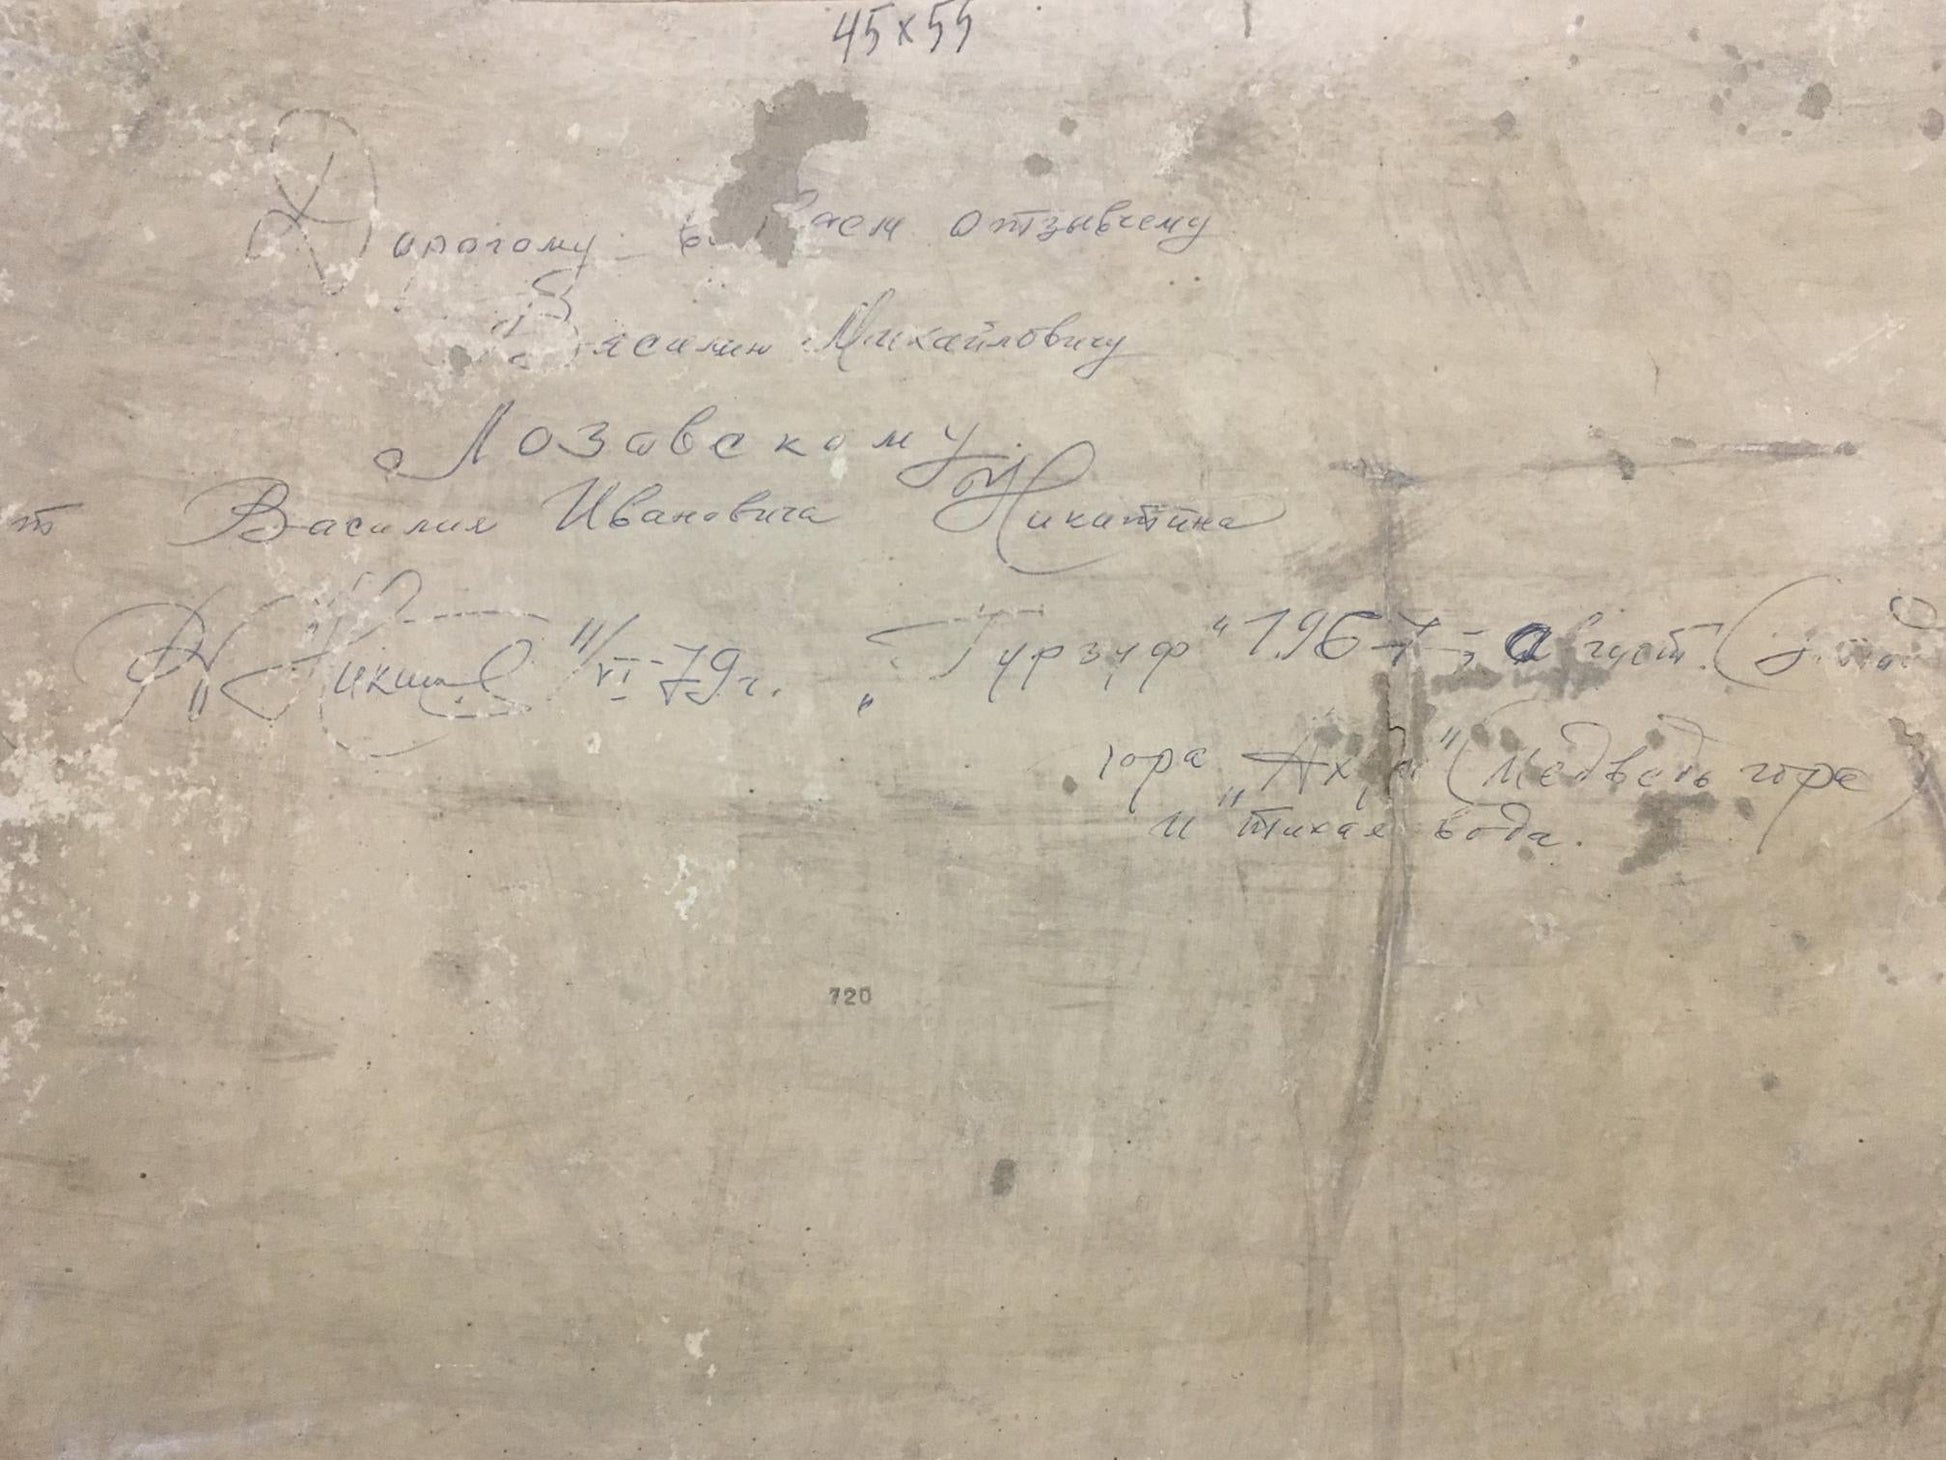 45х55
Дорогому отзывчему
Василию Михайловичу
Лозовскому
от Василия Ивановича Никитина
11/VI-79г. „Гурзуф“ 1967 - август. (
гора „ “ (Медведь гора)
и тихая вода.
120